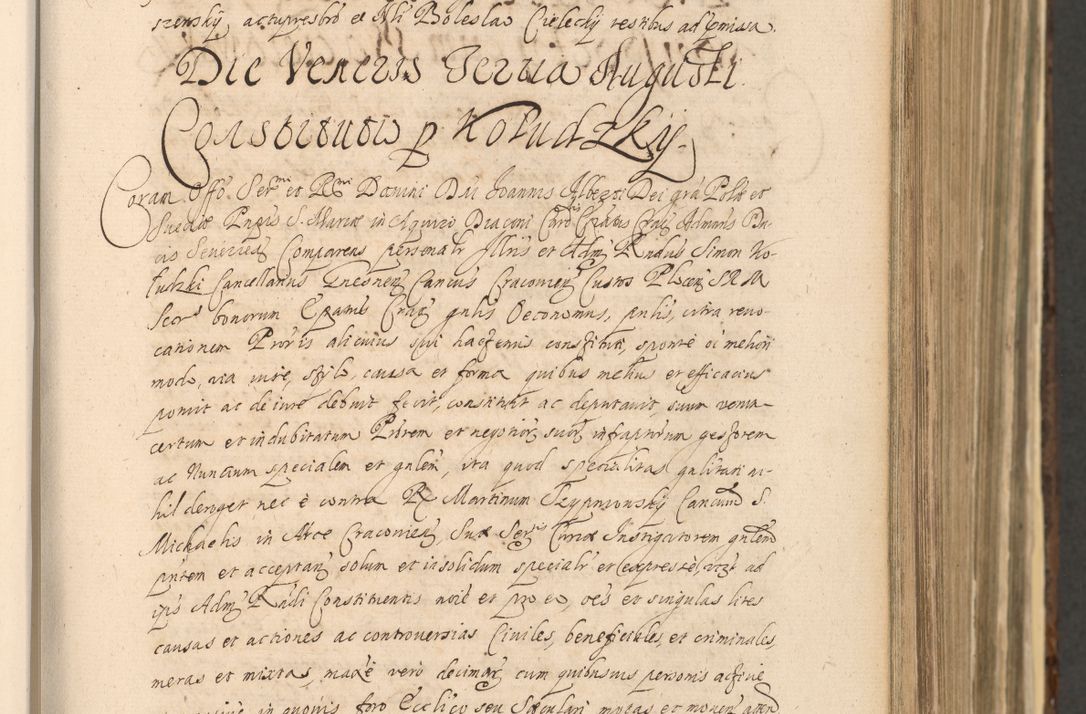 szenskÿ actu presbro et Nli Boleslao Cieleckÿ testibus ad pmissa.
Die Veneris Tertia Augusti.
Constitutio p Koludzkÿ.
Coram Offo Sermi et Rmi Domini Dni Joannis Alberti Dei gra Polæ et
Sueciæ Pnpis S. Mariæ in Aquiro Diaconi Cardlis Epatus Crac Admnris Du-
cis Severien Comparens personalr Illris et Adm Rndus Simon Ko-
ludzki Cancellarius Gnesnen Cancus Cracovien Custos Plocen S R M
Secrs bonorum Epatus Crac gnlis Oeconomus, pnlis, citra revo-
cationem Provis alicuius qui hactenus constituti, sponte oi meliori
modo, via iure, stylo, causa et forma quibus melius et efficacius
potuit ac de iure debuit fecit, constituit ac deputavit suum verum
certum et indubitatum Prrem et negotior suor infraptorum gestorem
ac Nuncium specialem et gnlem, ita quod specialitas gnlitati ni-
hil deroget nec è contra R Martinum Trzypniowskÿ Cancum S.
Michaelis in Arce Cracovien, Suæ Sers Curiæ Instigatorem gnlem
pntem et acceptan solum et insolidum specialr et expressè, vizt ad
ipis Adm Rndi Constituentis noie et pro eo, oes et singulas lites
causas et actiones ac controversias Civiles, beneficiales, et criminales,
meras et mixtas, maxè vero decimar cum quibusvis personis active
et passive in quovis foro Ecclico seu Sæculari motas et moven atten